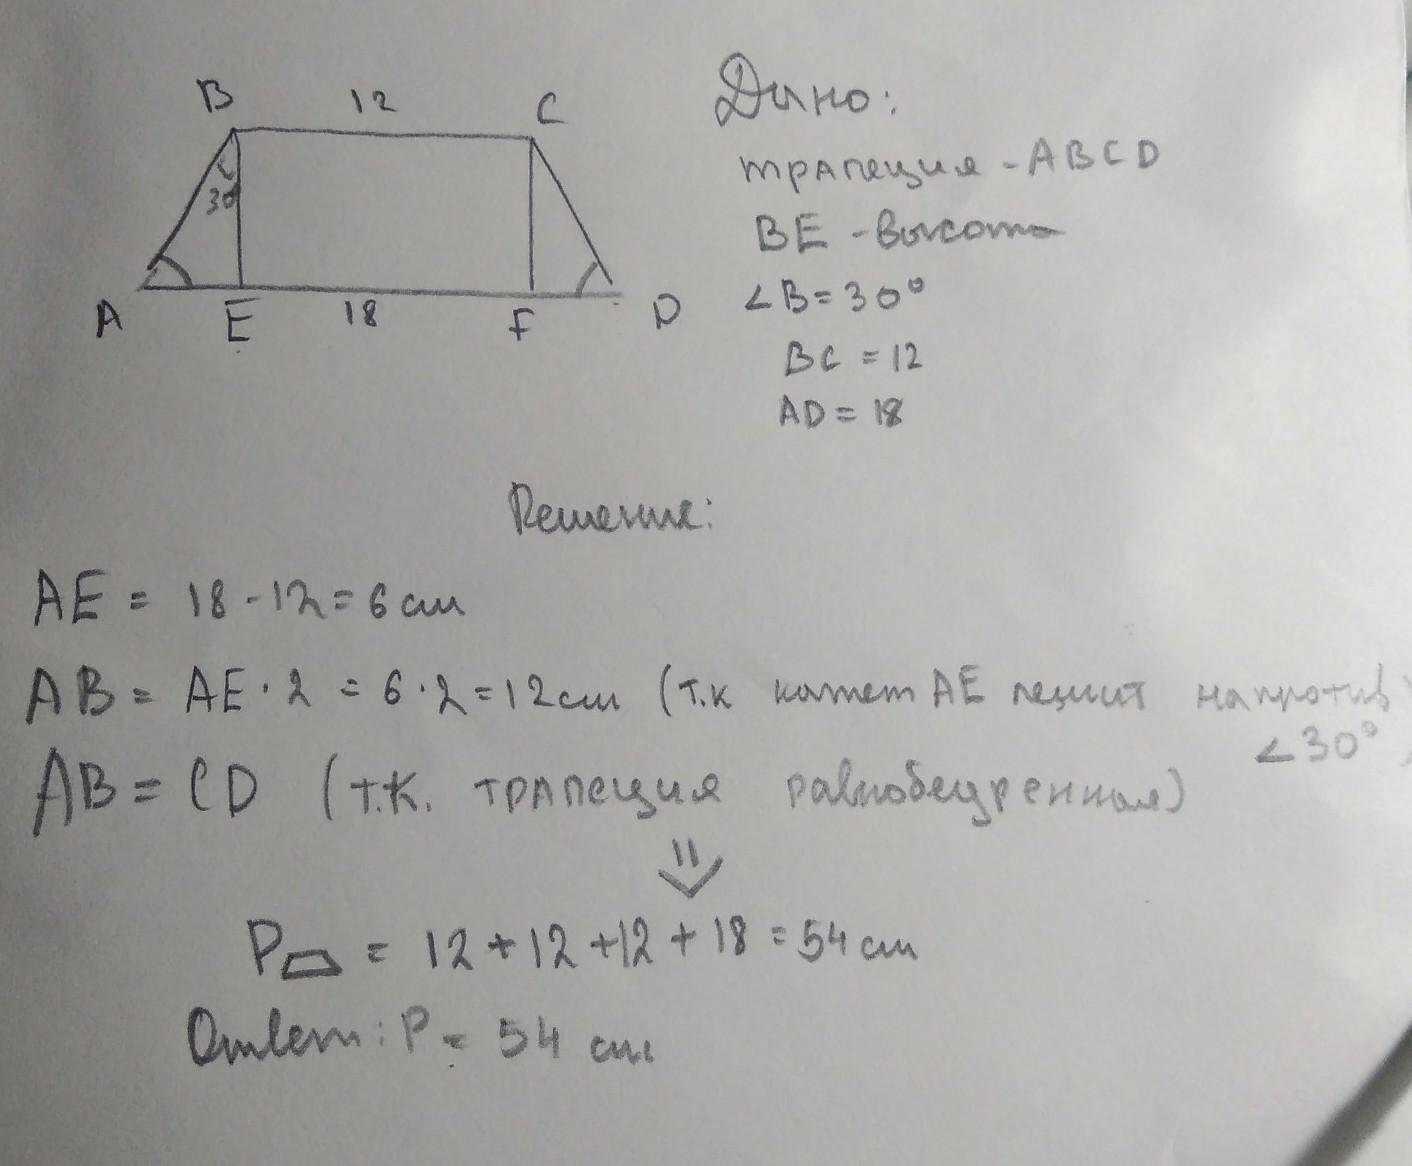 B 12 C
30°
A E 18 F D
Дано:
трапеция - ABCD
BE - высота
∠B = 30°
BC = 12
AD = 18
Решение:
AE = 18 - 12 = 6 см
AB = AE · 2 = 6 · 2 = 12 см (т.к катет AE лежит напротив
∠30°)
AB = CD (т.к. трапеция равнобедренная)
⇓
P = 12 + 12 + 12 + 18 = 54 см
Ответ: P = 54 см